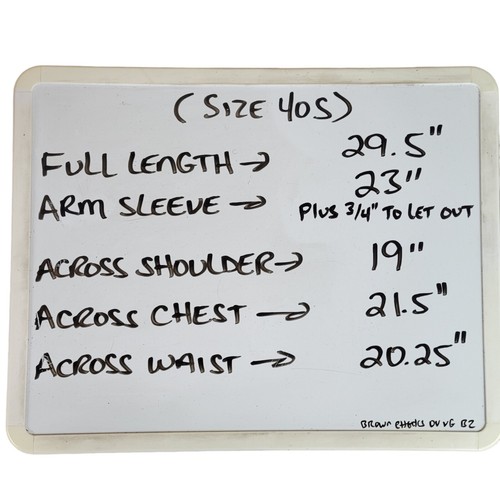 (SIZE 40S)
FULL LENGTH → 29.5"
ARM SLEEVE → 23"
PLUS 3/4" TO LET OUT
ACROSS SHOULDER → 19"
ACROSS CHEST → 21.5"
ACROSS WAIST → 20.25"
BROWN CHECKS